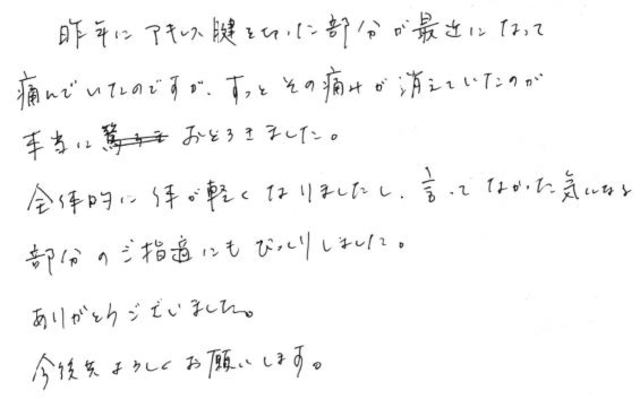 昨年にアキレス腱を切った部分が最近になって
痛んでいたのですが、すっとその痛みが消えていたのが
本当に驚き おどろきました。
全体的に体が軽くなりましたし、言ってなかった気になる
部分のご指適にもびっくりしました。
ありがとうございました。
今後共よろしくお願いします。